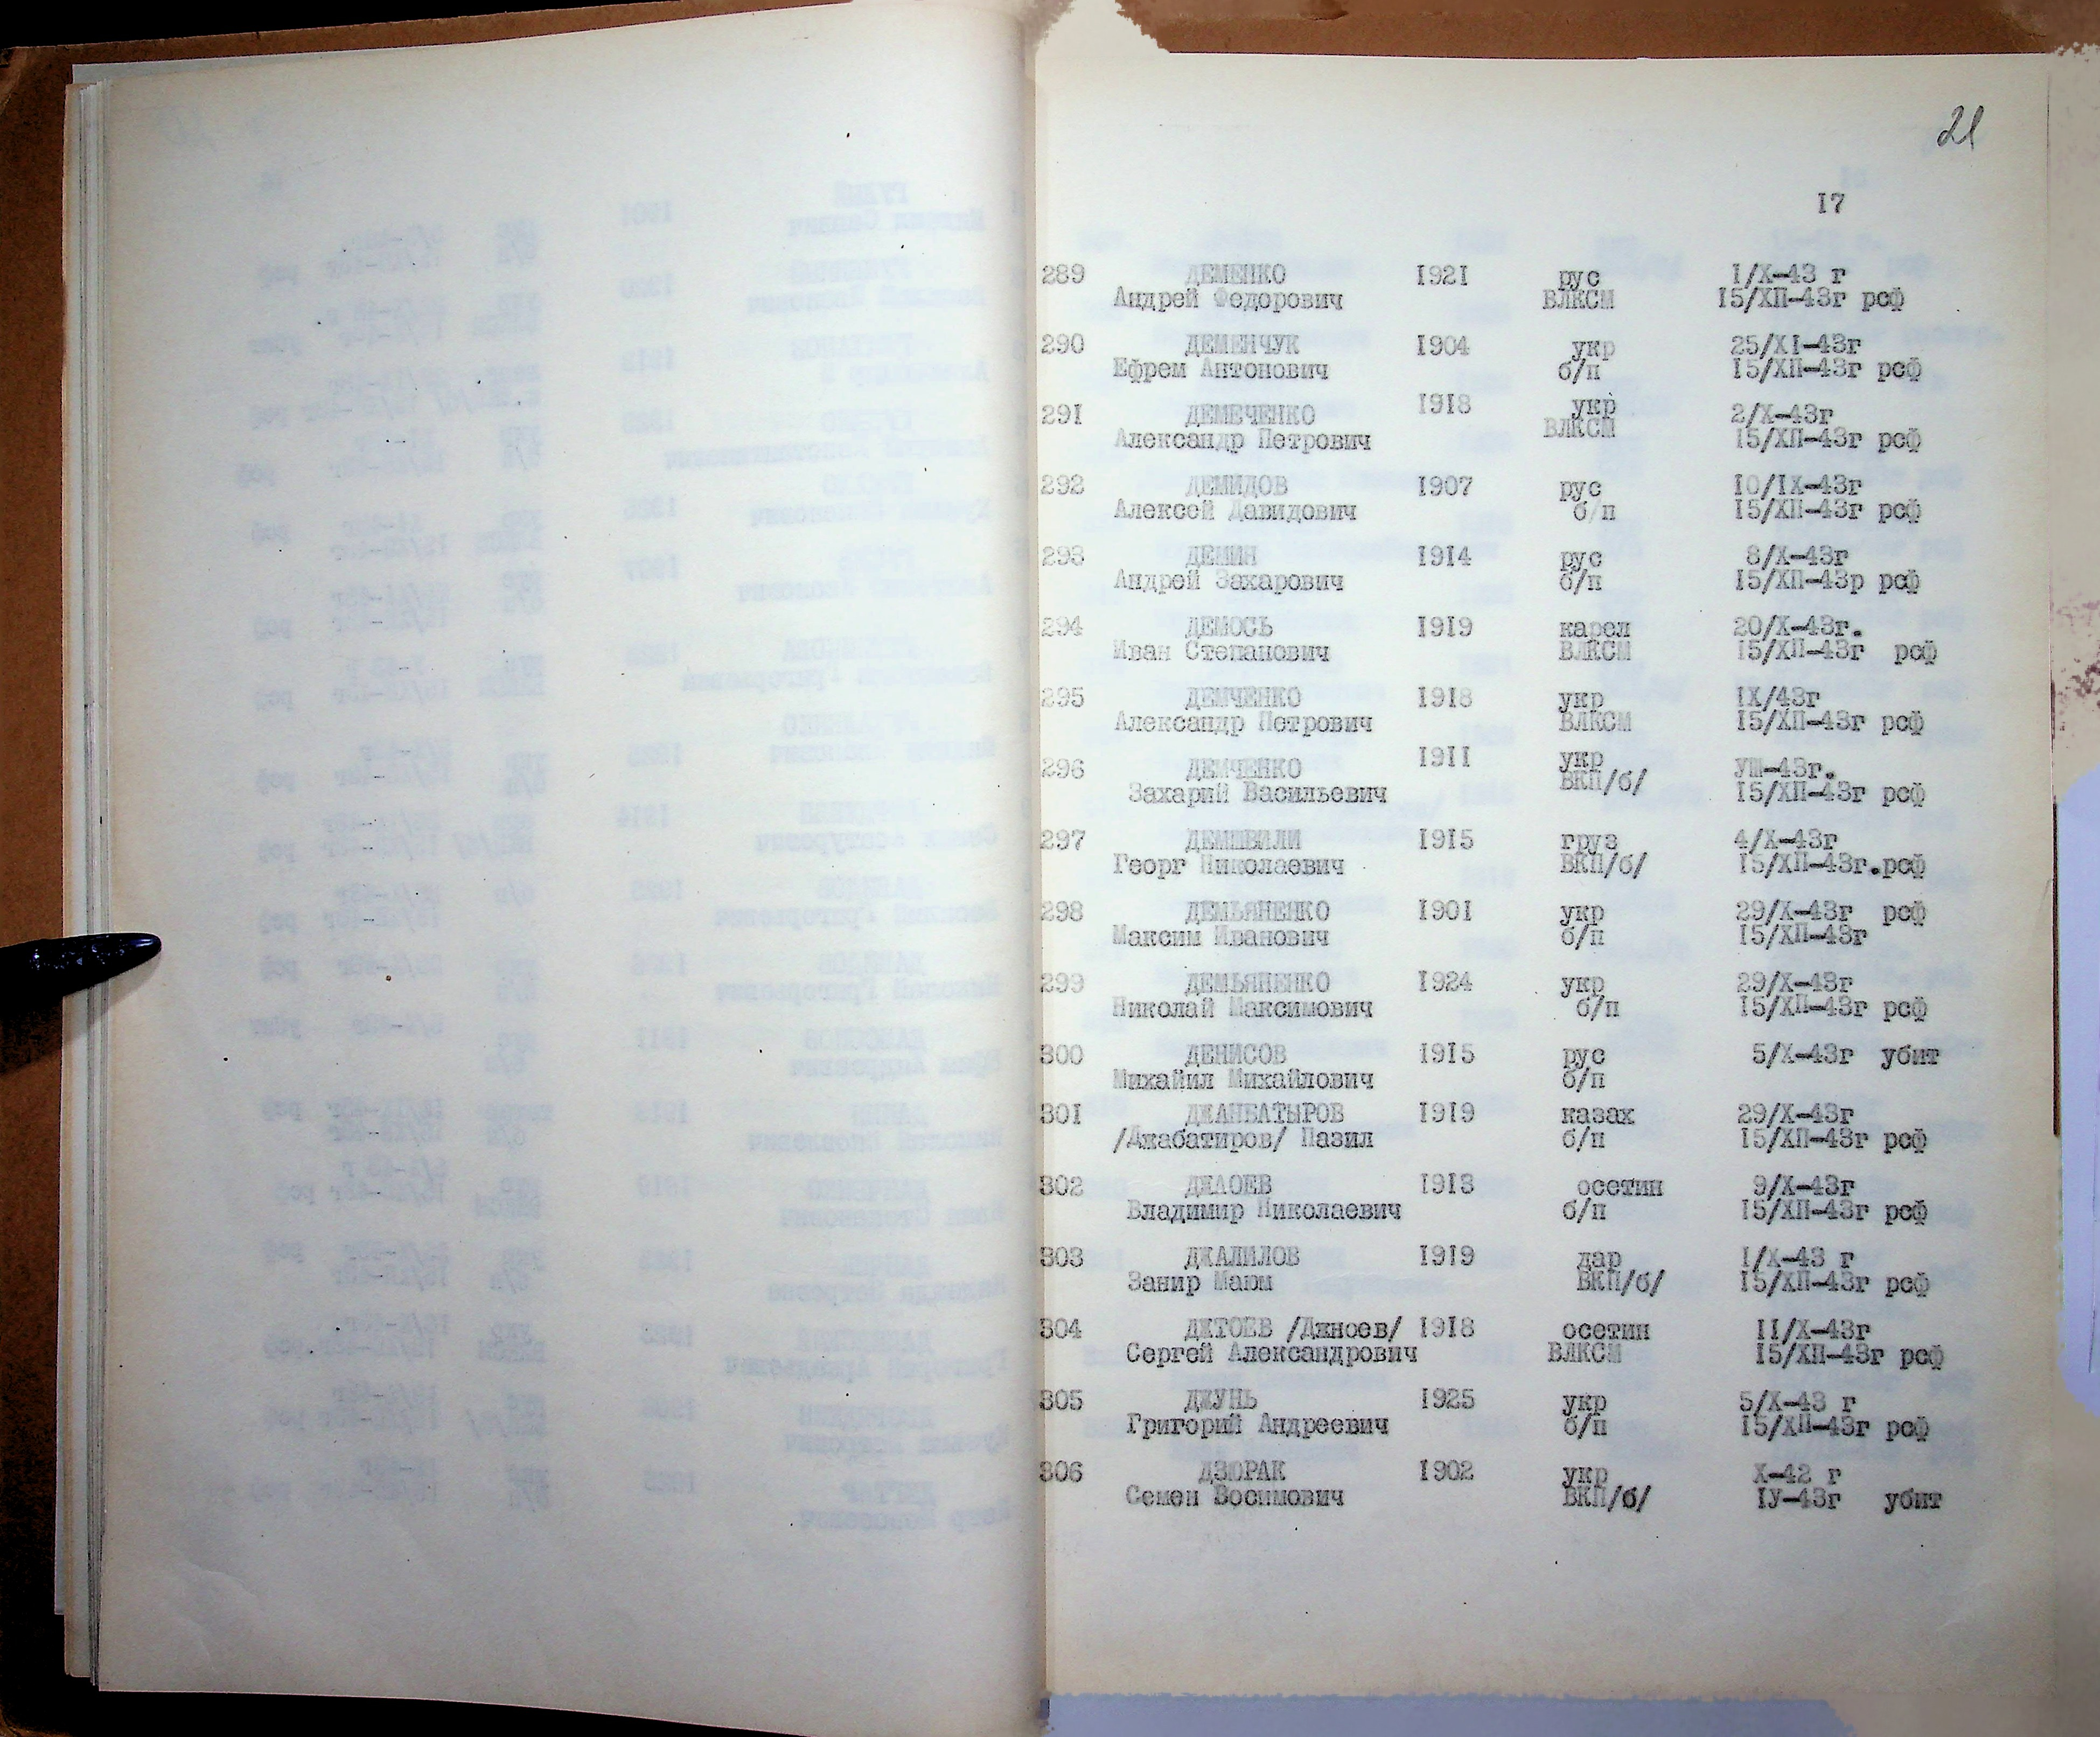 21
17
289 ДЕМЕНКО 1921 рус 1/X-43 г
Андрей Федорович ВЛКСМ 15/XП-43г рсф
290 ДЕМЕНЧУК 1904 укр 25/XI-43г
Ефрем Антонович б/п 15/XП-43г рсф
291 ДЕМЕЧЕНКО 1918 укр 2/X-43г
Александр Петрович ВЛКСМ 15/XП-43г рсф
292 ДЕМИДОВ 1907 рус 10/IX-43г
Алексей Давидович б/п 15/XП-43г рсф
293 ДЕМИН 1914 рус 8/X-43г
Андрей Захарович б/п 15/XП-43р рсф
294 ДЕМОСЬ 1919 карел 20/X-43г.
Иван Степанович ВЛКСМ 15/XП-43г рсф
295 ДЕМЧЕНКО 1918 укр IX/43г
Александр Петрович ВЛКСМ 15/XП-43г рсф
296 ДЕМЧЕНКО 1911 укр УШ-43г.
Захарий Васильевич ВКП/б/ 15/XП-43г рсф
297 ДЕМШВИЛИ 1915 груз 4/X-43г
Георг Николаевич ВКП/б/ 15/XП-43г.рсф
298 ДЕМЬЯНЕНКО 1901 укр 29/X-43г рсф
Максим Иванович б/п 15/XП-43г
299 ДЕМЬЯНЕНКО 1924 укр 29/X-43г
Николай Максимович б/п 15/XП-43г рсф
300 ДЕНИСОВ 1915 рус 5/X-43г убит
Михайил Михайлович б/п
301 ДЖАНБАТЫРОВ 1919 казах 29/X-43г
/Джабатиров/ Пазил б/п 15/XП-43г рсф
302 ДЖАОЕВ 1913 осетин 9/X-43г
Владимир Николаевич б/п 15/XП-43г рсф
303 ДЖАЛИЛОВ 1919 дар 1/X-43 г
Занир Маюм ВКП/б/ 15/XП-43г рсф
304 ДЖТОЕВ /Джноев/ 1918 осетин 11/X-43г
Сергей Александрович ВЛКСМ 15/XП-43г рсф
305 ДЖУНЬ 1925 укр 5/X-43 г
Григорий Андреевич б/п 15/XП-43г рсф
306 ДЗЮРАК 1902 укр X-42 г
Семен Зосимович ВКП/б/ IУ-43г убит